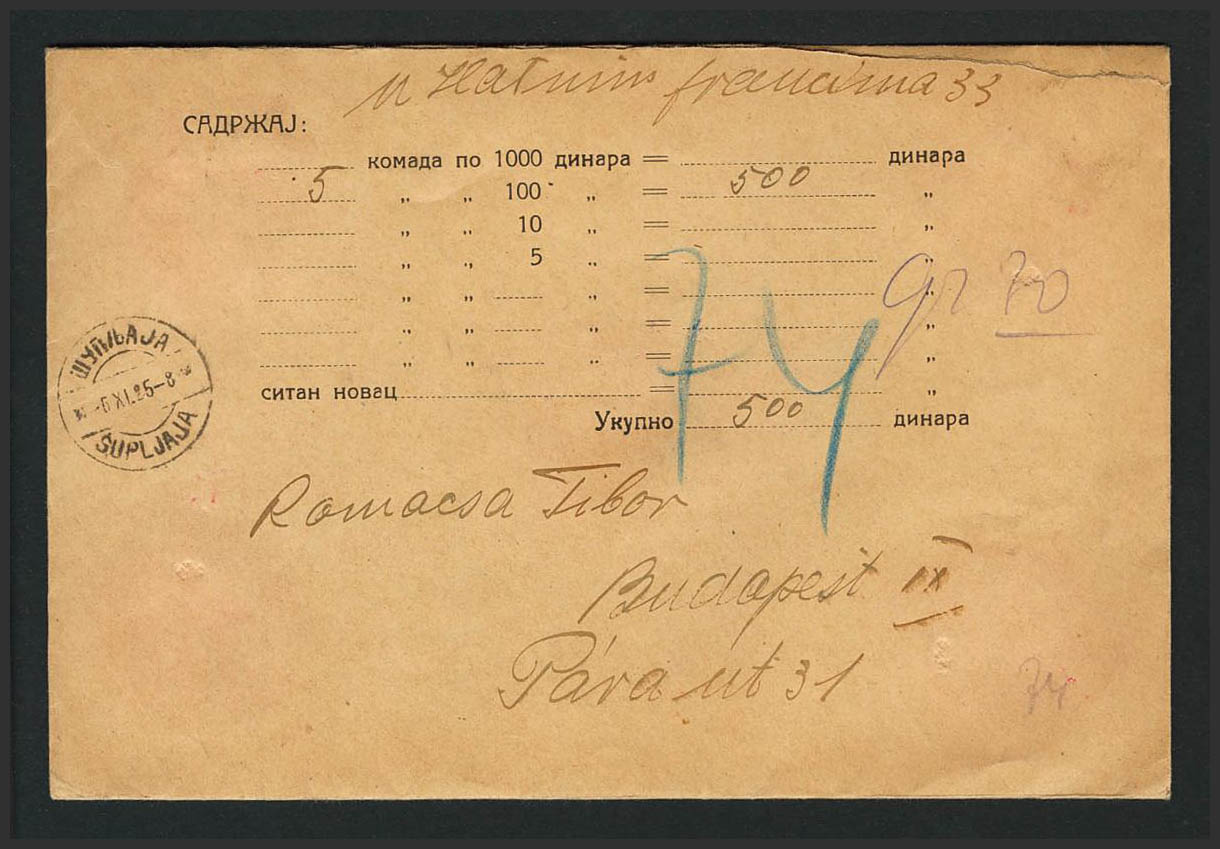 u zlatnim francima 33
САДРЖАЈ:
комада по 1000 динара = динара
5 „ „ 100 „ = 500 „
„ „ 10 „ = „
„ „ 5 „ = „
„ „ „ = „
„ „ „ = „
„ „ „ = „
ситан новац = „
Укупно 500 динара
74
gr 70
ШУПЉАЈА
-6 XI.25-8
ŠUPLJAJA
Romacsa Tibor
Budapest IX
Páva ut 31
74